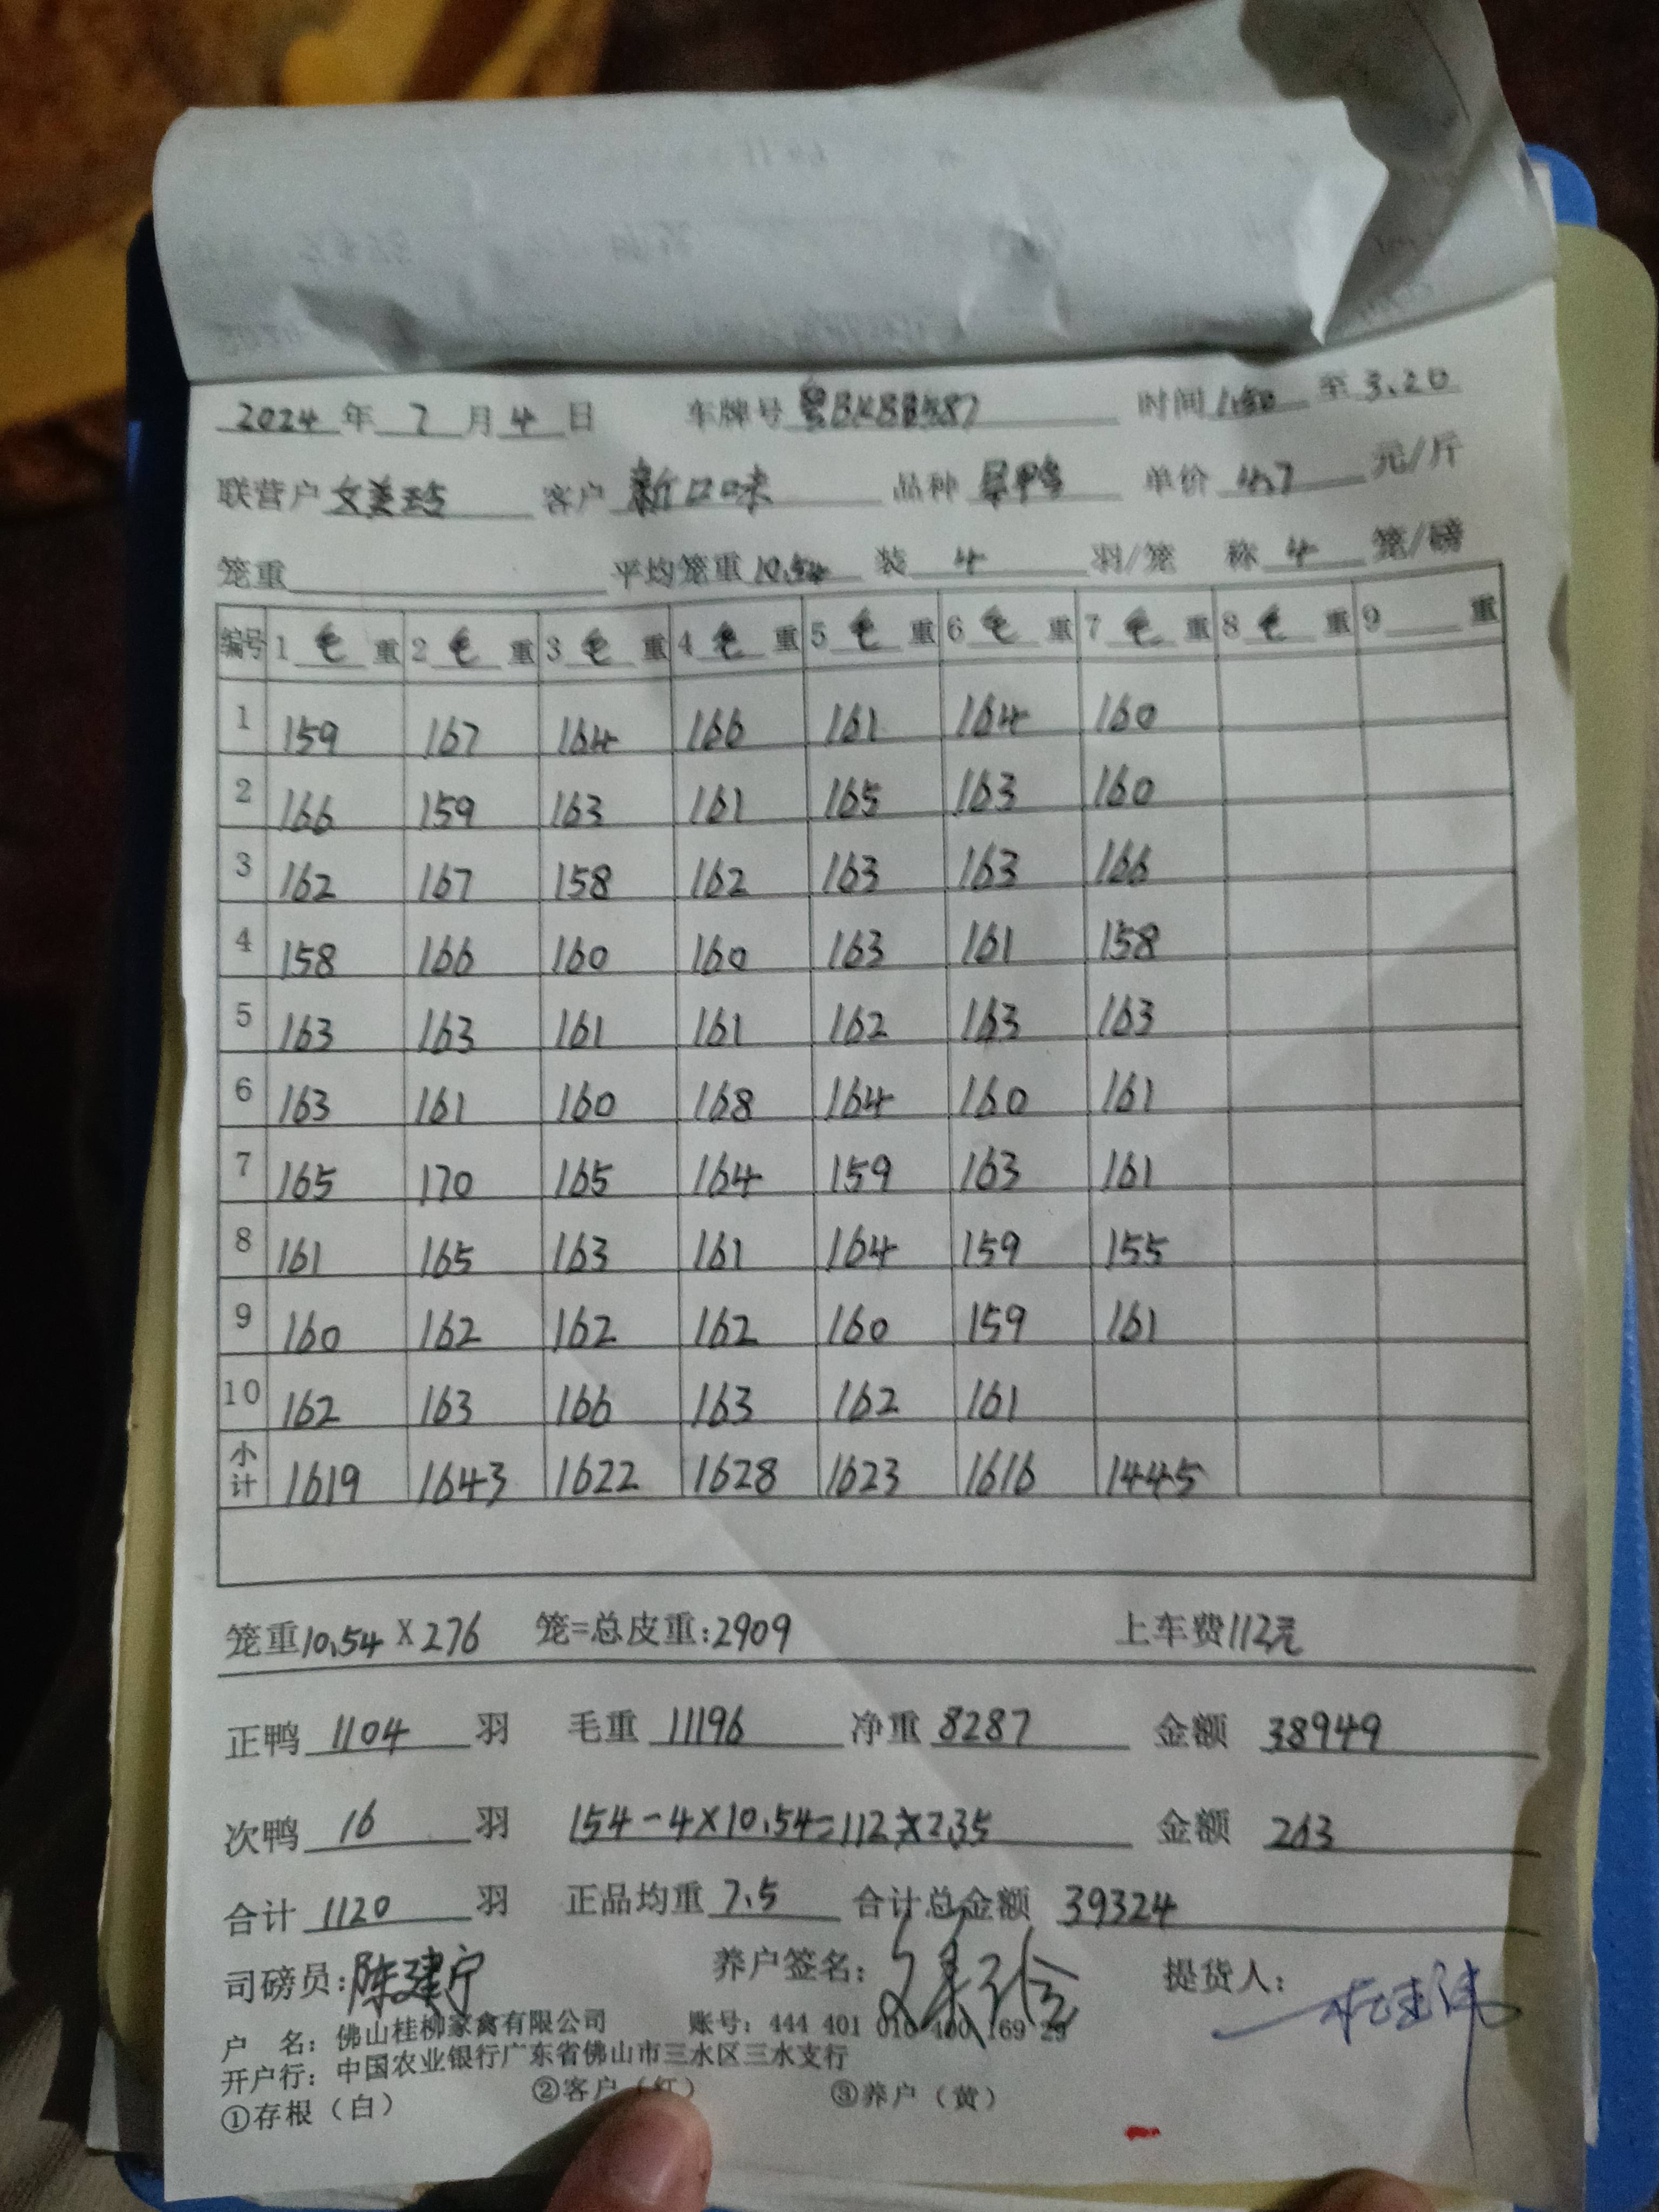 2024年7月4日 车牌号 粤BKBB587 时间1.50至3.20
联营户文美玲 客户新口味 品种 单价4.7元/斤
笼重 平均笼重10.54 装4羽/笼 称4笼/磅
编号 1毛重 2毛重 3毛重 4毛重 5毛重 6毛重 7毛重 8毛重 9重
1 159 167 164 166 161 164 160
2 166 159 163 161 165 163 160
3 162 167 158 162 163 163 166
4 158 166 160 160 163 161 158
5 163 163 161 161 162 163 163
6 163 161 160 168 164 160 161
7 165 170 165 164 159 163 161
8 161 165 163 161 164 159 155
9 160 162 162 162 160 159 161
10 162 163 166 163 162 161
小计 1619 1643 1622 1628 1623 1616 1445
笼重10.54×276 笼=总皮重:2909 上车费112元
正鸭1104羽 毛重11196 净重8287 金额38949
次鸭16羽 154-4×10.54=112×2.35 金额263
合计1120羽 正品均重7.5 合计总金额39324
司磅员:陈建宁 养户签名: 提货人:
户 名:佛山桂柳家禽有限公司 账号:444 401 010 400 169 29
开户行:中国农业银行广东省佛山市三水区三水支行
①存根(白) ②客户(红) ③养户(黄)